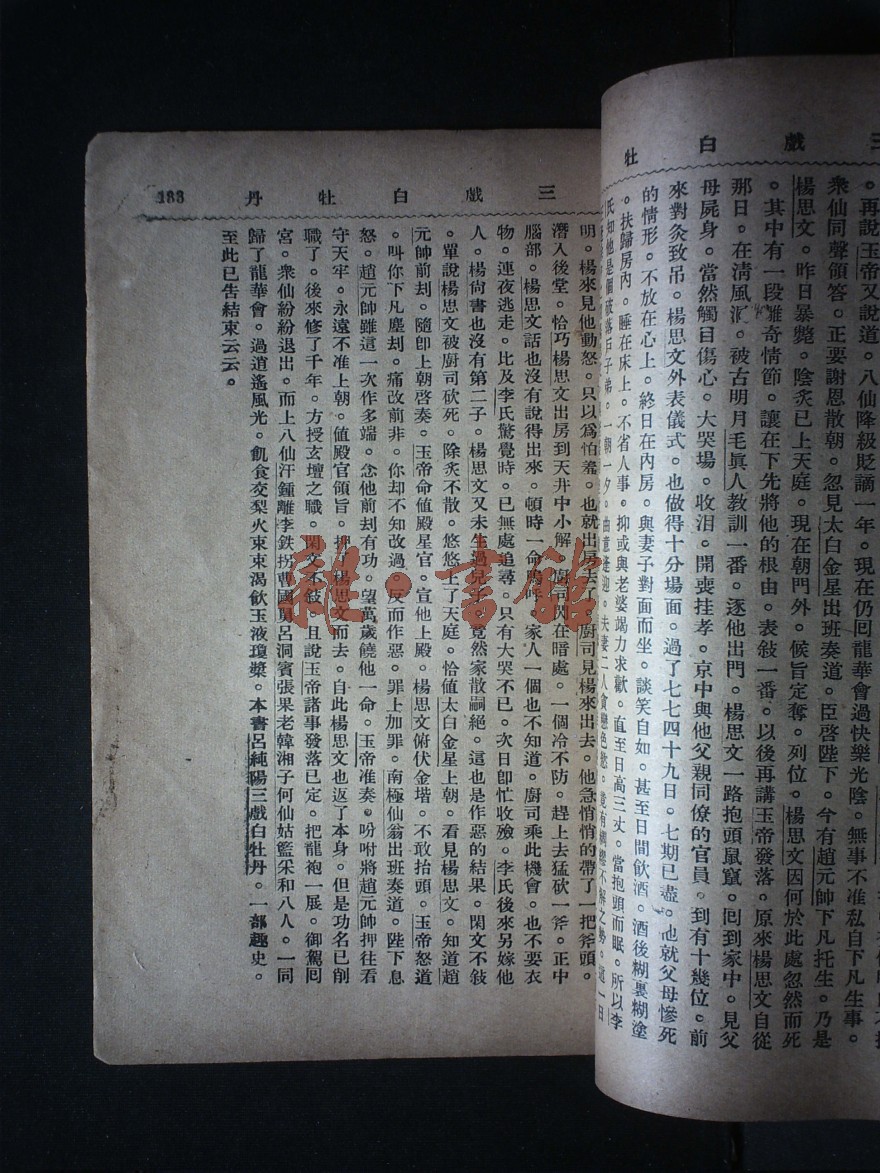 三戲白牡
。再說玉帝又說道。八仙降級貶謫一年。現在仍回龍華會過快樂光陰。無事不准私自下凡生事。
衆仙同聲領答。正要謝恩散朝。忽見太白金星出班奏道。臣啓陛下。今有趙元帥下凡托生。乃是
楊思文。昨日暴斃。陰炁已上天庭。現在朝門外。候旨定奪。列位。楊思文因何於此處忽然而死
。其中有一段離奇情節。讓在下先將他的根由。表敍一番。以後再講玉帝發落。原來楊思文自從
那日。在淸風洞。被古明月毛眞人教訓一番。逐他出門。楊思文一路抱頭鼠竄。回到家中。見父
母屍身。當然觸目傷心。大哭塲。收泪。開喪挂孝。京中與他父親同僚的官員。到有十幾位。前
來對灸致吊。楊思文外表儀式。也做得十分塲面。過了七七四十九日。七期已盡。他就父母慘死
的情形。不放在心上。終日在內房。與妻子對面而坐。談笑自如。甚至日間飮酒。酒後糊裏糊塗
。扶歸房內。睡在床上。不省人事。抑或與老婆竭力求歡。直至日高三丈。當抱頭而眠。所以李
氏知他是個破落戶子弟。一朝一夕。曲意逢迎。夫妻二人貪戀色慾。竟有綢繆不解之勢。這一日
三戲白牡丹
183
明。楊來見他動怒。只以爲怕羞。也就出房去了。廚司見楊來出去。他急悄悄的帶了一把斧頭。
潛入後堂。恰巧楊思文出房到天井中小解。廚司閃在暗處。一個冷不防。趕上去猛砍一斧。正中
腦部。楊思文話也沒有說得出來。頓時一命嗚呼。家人一個也不知道。廚司乘此機會。也不要衣
物。連夜逃走。比及李氏驚覺時。已無處追尋。只有大哭不已。次日卽忙收殮。李氏後來另嫁他
人。楊尙書也沒有第二子。楊思文又未生過兒子。竟然家散嗣絕。這也是作惡的結果。閑文不敍
。單說楊思文被廚司砍死。除炁不散。悠悠上了天庭。恰値太白金星上朝。看見楊思文。知道趙
元帥前刦。隨卽上朝啓奏。玉帝命値殿星官。宣他上殿。楊思文俯伏金堦。不敢抬頭。玉帝怒道
。叫你下凡塵刦。痛改前非。你却不知改過。反而作惡。罪上加罪。南極仙翁出班奏道。陛下息
怒。趙元帥雖這一次作多端。念他前刦有功。望萬歲饒他一命。玉帝准奏。吩咐將趙元帥押往看
守天牢。永遠不准上朝。値殿官領旨。押了楊思文而去。自此楊思文也返了本身。但是功名已削
職了。後來修了千年。方授玄壇之職。閑文不敍。且說玉帝諸事發落已定。把龍袍一展。御駕囘
宮。衆仙紛紛退出。而上八仙汗鍾離李鉄拐曹國舅呂洞賓張果老韓湘子何仙姑籃采和八人。一同
歸了龍華會。過逍遙風光。飢食交梨火棗渴飮玉液瓊漿。本書呂純陽三戲白牡丹。一部趣史。
至此已告結束云云。
雜·書館